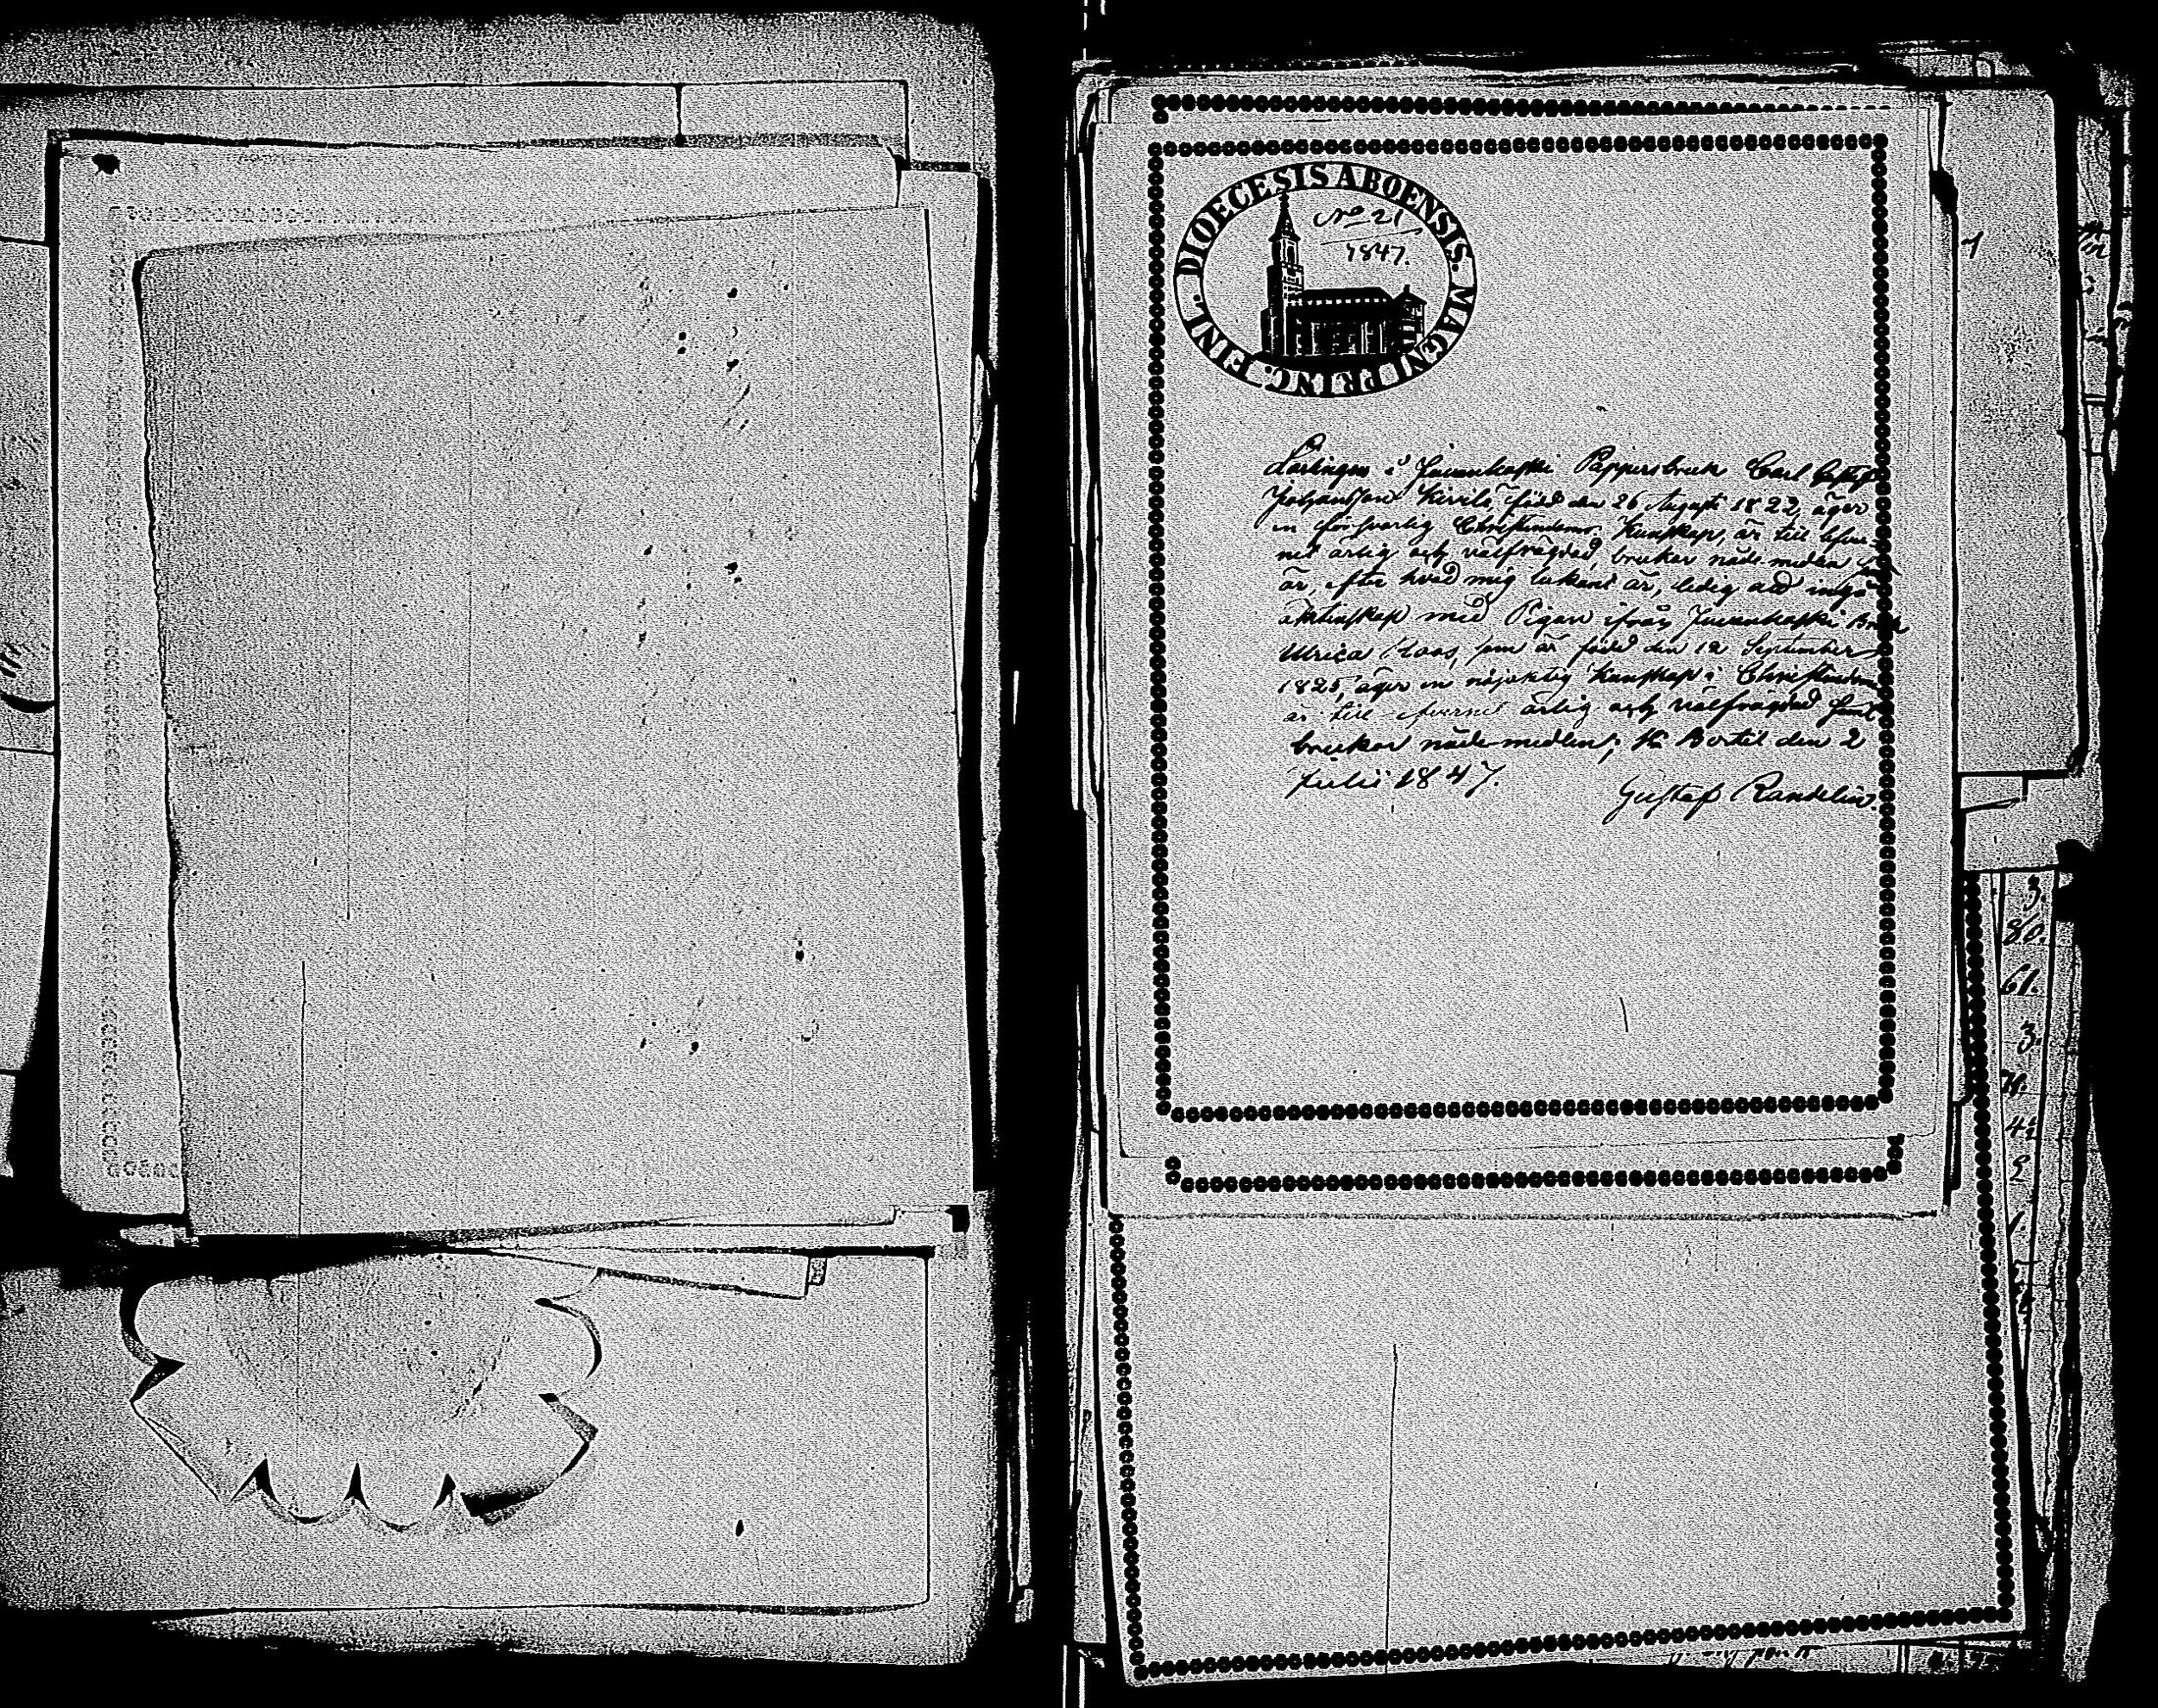 DIOECESIS ABOENSIS. MAGNI PRINC. FINL.
No 21
1847.
Lärlingen i Juvankoski Pappersbruk Carl Gustaf
Johansson Kivilä, född den 26 Augusti 1822, äger
en försvarlig Christendoms Kunskap, är till lefver-
net ärlig och välfrägdad, brukar nådemedlen samt
är, efter hvad mig bekant är, ledig att ingå
äktenskap med Pigan ifrån Juvankoski Bruk
Ulrica Roos, som är född den 12 September
1825, äger en nöjaktig Kunskap i Christendom
är till lefvernet ärlig och välfrägdad samt
brukar nådemedlen; St Bertel den 2
Julii 1847.
Gustaf Randelin.
7
3.
80.
61.
3.